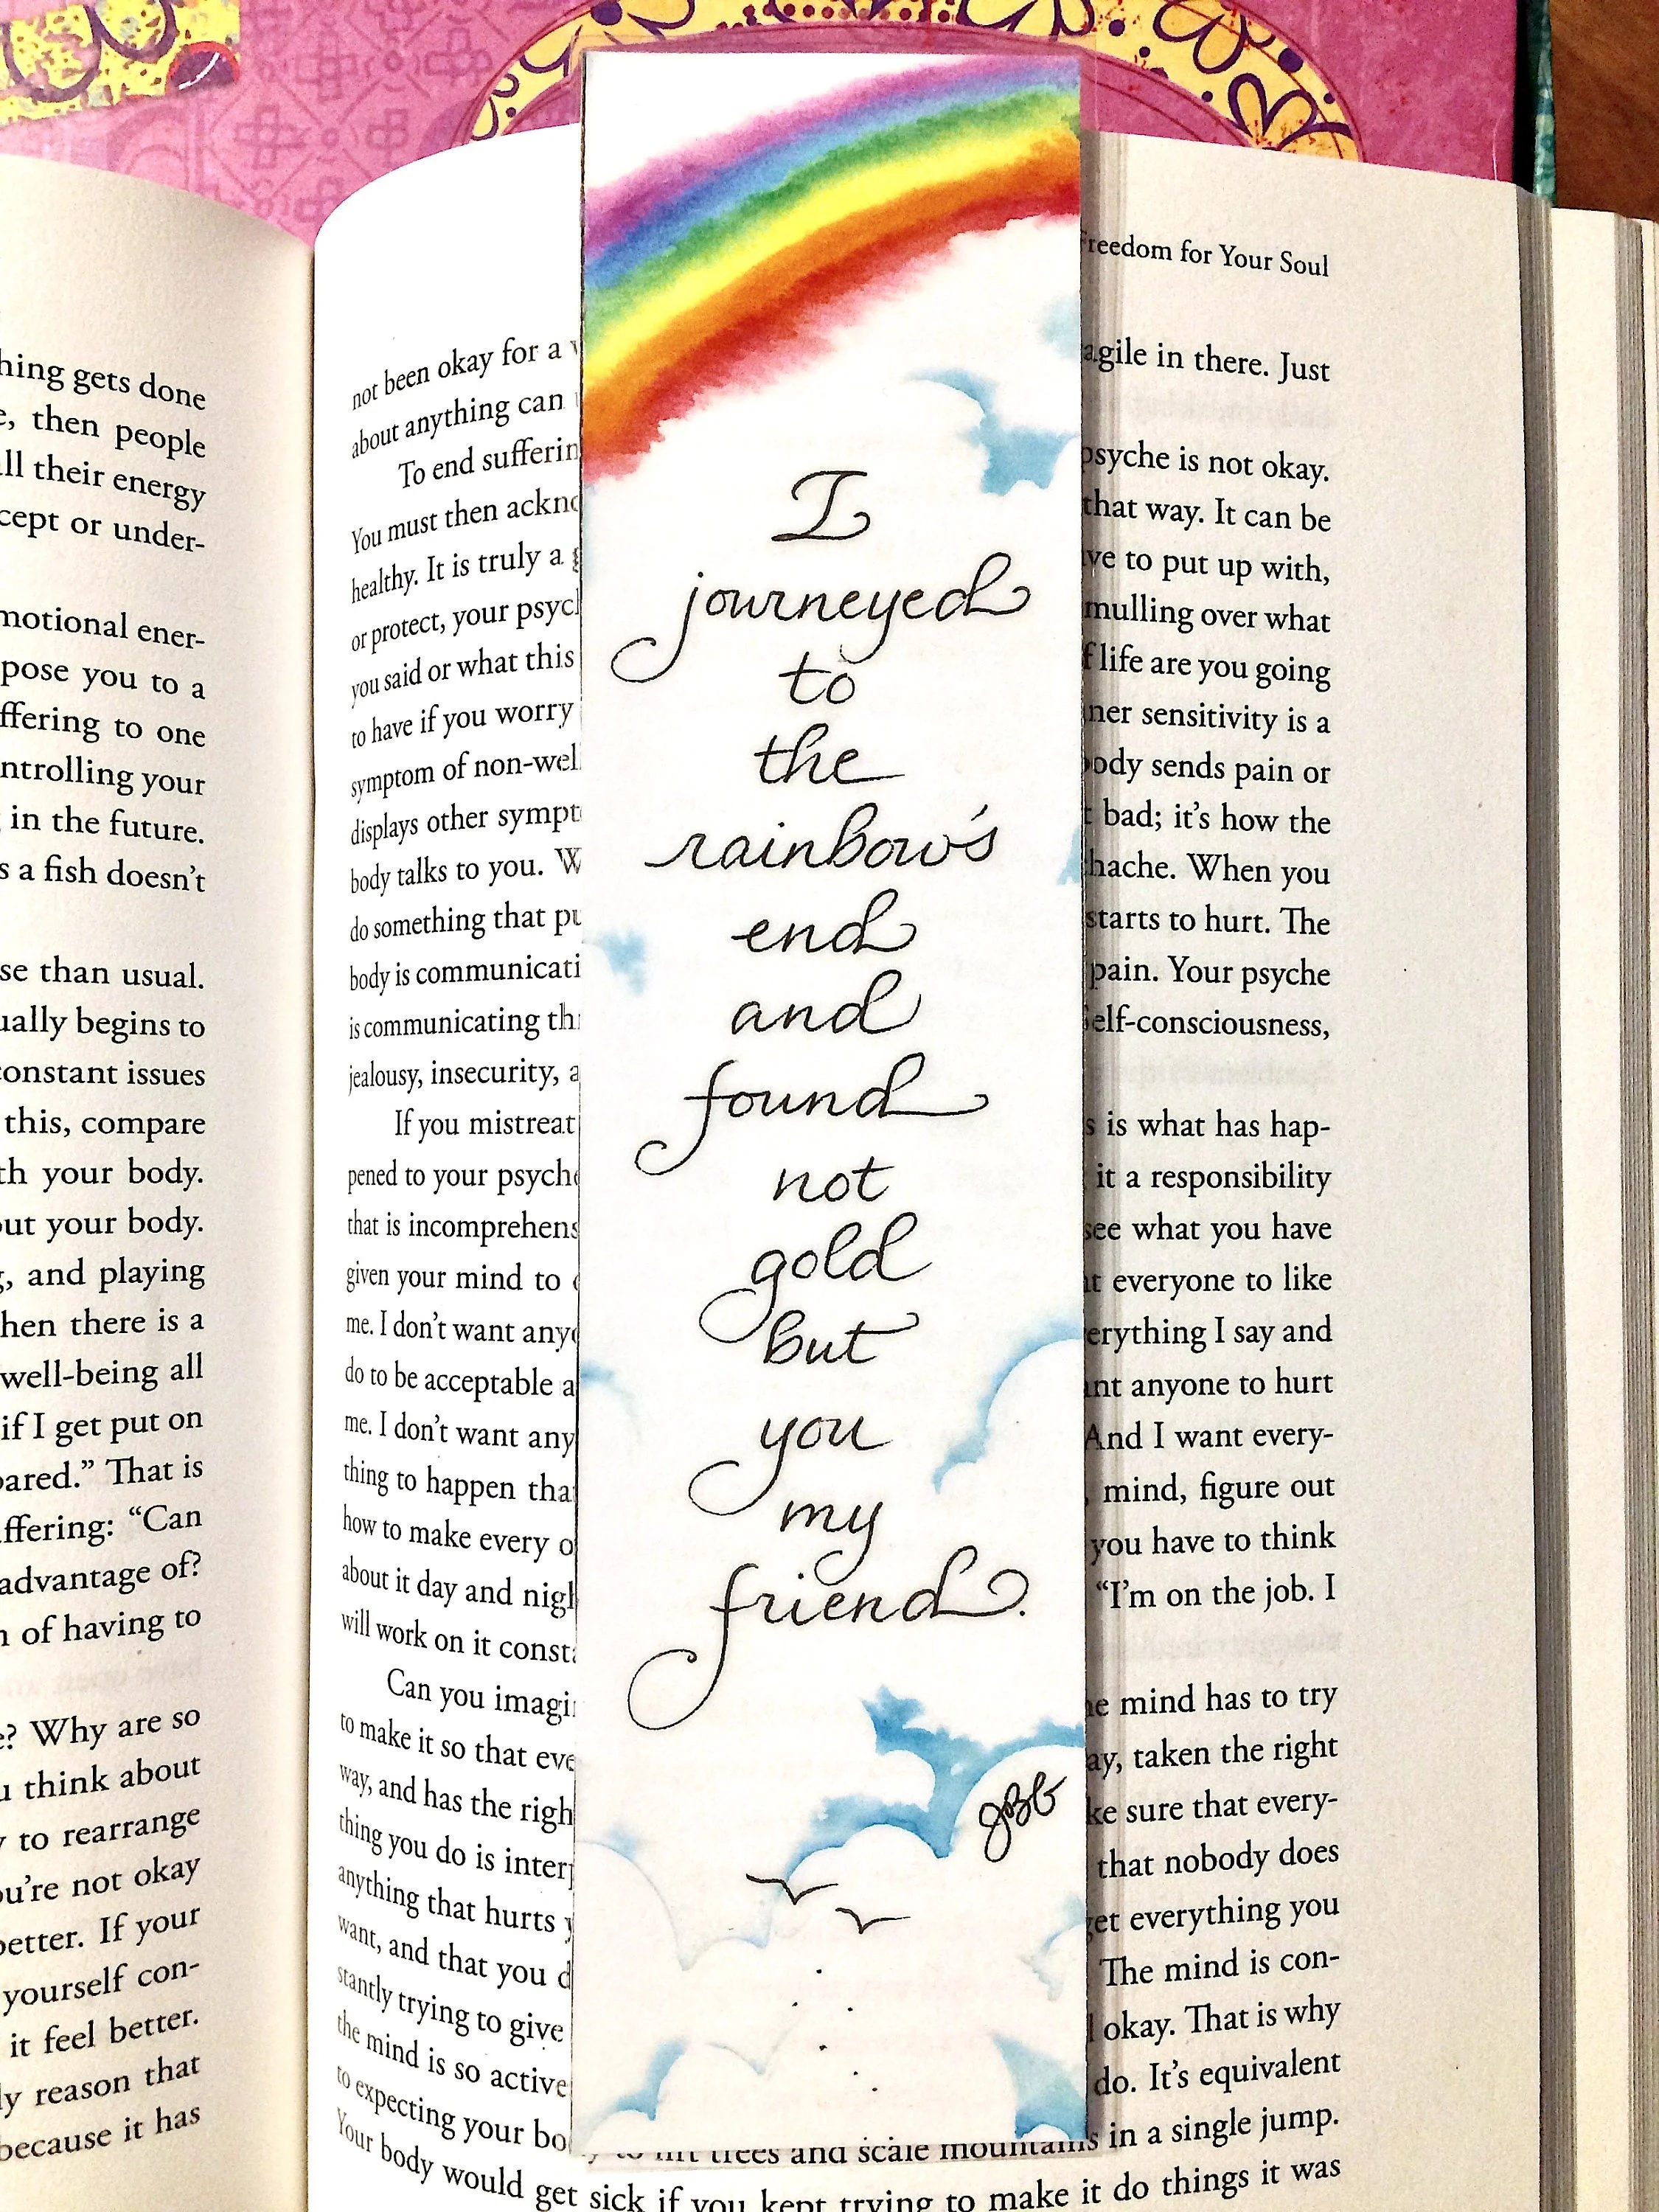 hing gets done
, then people
ll their energy
cept or under-
motional ener-
pose you to a
ffering to one
ntrolling your
in the future.
s a fish doesn't
se than usual.
ually begins to
constant issues
this, compare
th your body.
out your body.
, and playing
hen there is a
well-being all
if I get put on
pared." That is
ffering: "Can
advantage of?
n of having to
? Why are so
u think about
y to rearrange
ou're not okay
better. If your
yourself con-
it feel better.
ly reason that
because it has
reedom for Your Soul
not been okay for a agile in there. Just
about anything can
To end sufferin psyche is not okay.
You must then ackno that way. It can be
healthy. It is truly a ve to put up with,
or protect, your psycl mulling over what
you said or what this f life are you going
to have if you worry ner sensitivity is a
symptom of non-wel ody sends pain or
displays other sympt bad; it's how the
body talks to you. W hache. When you
do something that pu starts to hurt. The
body is communicati pain. Your psyche
is communicating th Self-consciousness,
jealousy, insecurity, a
If you mistreat s is what has hap-
pened to your psyche it a responsibility
that is incomprehens see what you have
given your mind to everyone to like
me. I don't want anyo erything I say and
do to be acceptable a nt anyone to hurt
me. I don't want any And I want every-
thing to happen tha , mind, figure out
how to make every o you have to think
about it day and nigh "I'm on the job. I
will work on it const
Can you imagi e mind has to try
to make it so that eve ay, taken the right
way, and has the righ ke sure that every-
thing you do is inter that nobody does
anything that hurts y get everything you
want, and that you d The mind is con-
stantly trying to give okay. That is why
the mind is so active do. It's equivalent
to expecting your bo to lift trees and scale mountains in a single jump.
Your body would get sick if you kept trying to make it do things it was
I
journeyed
to
the
rainbow's
end
and
found
not
gold
but
you
my
friend.
JBG